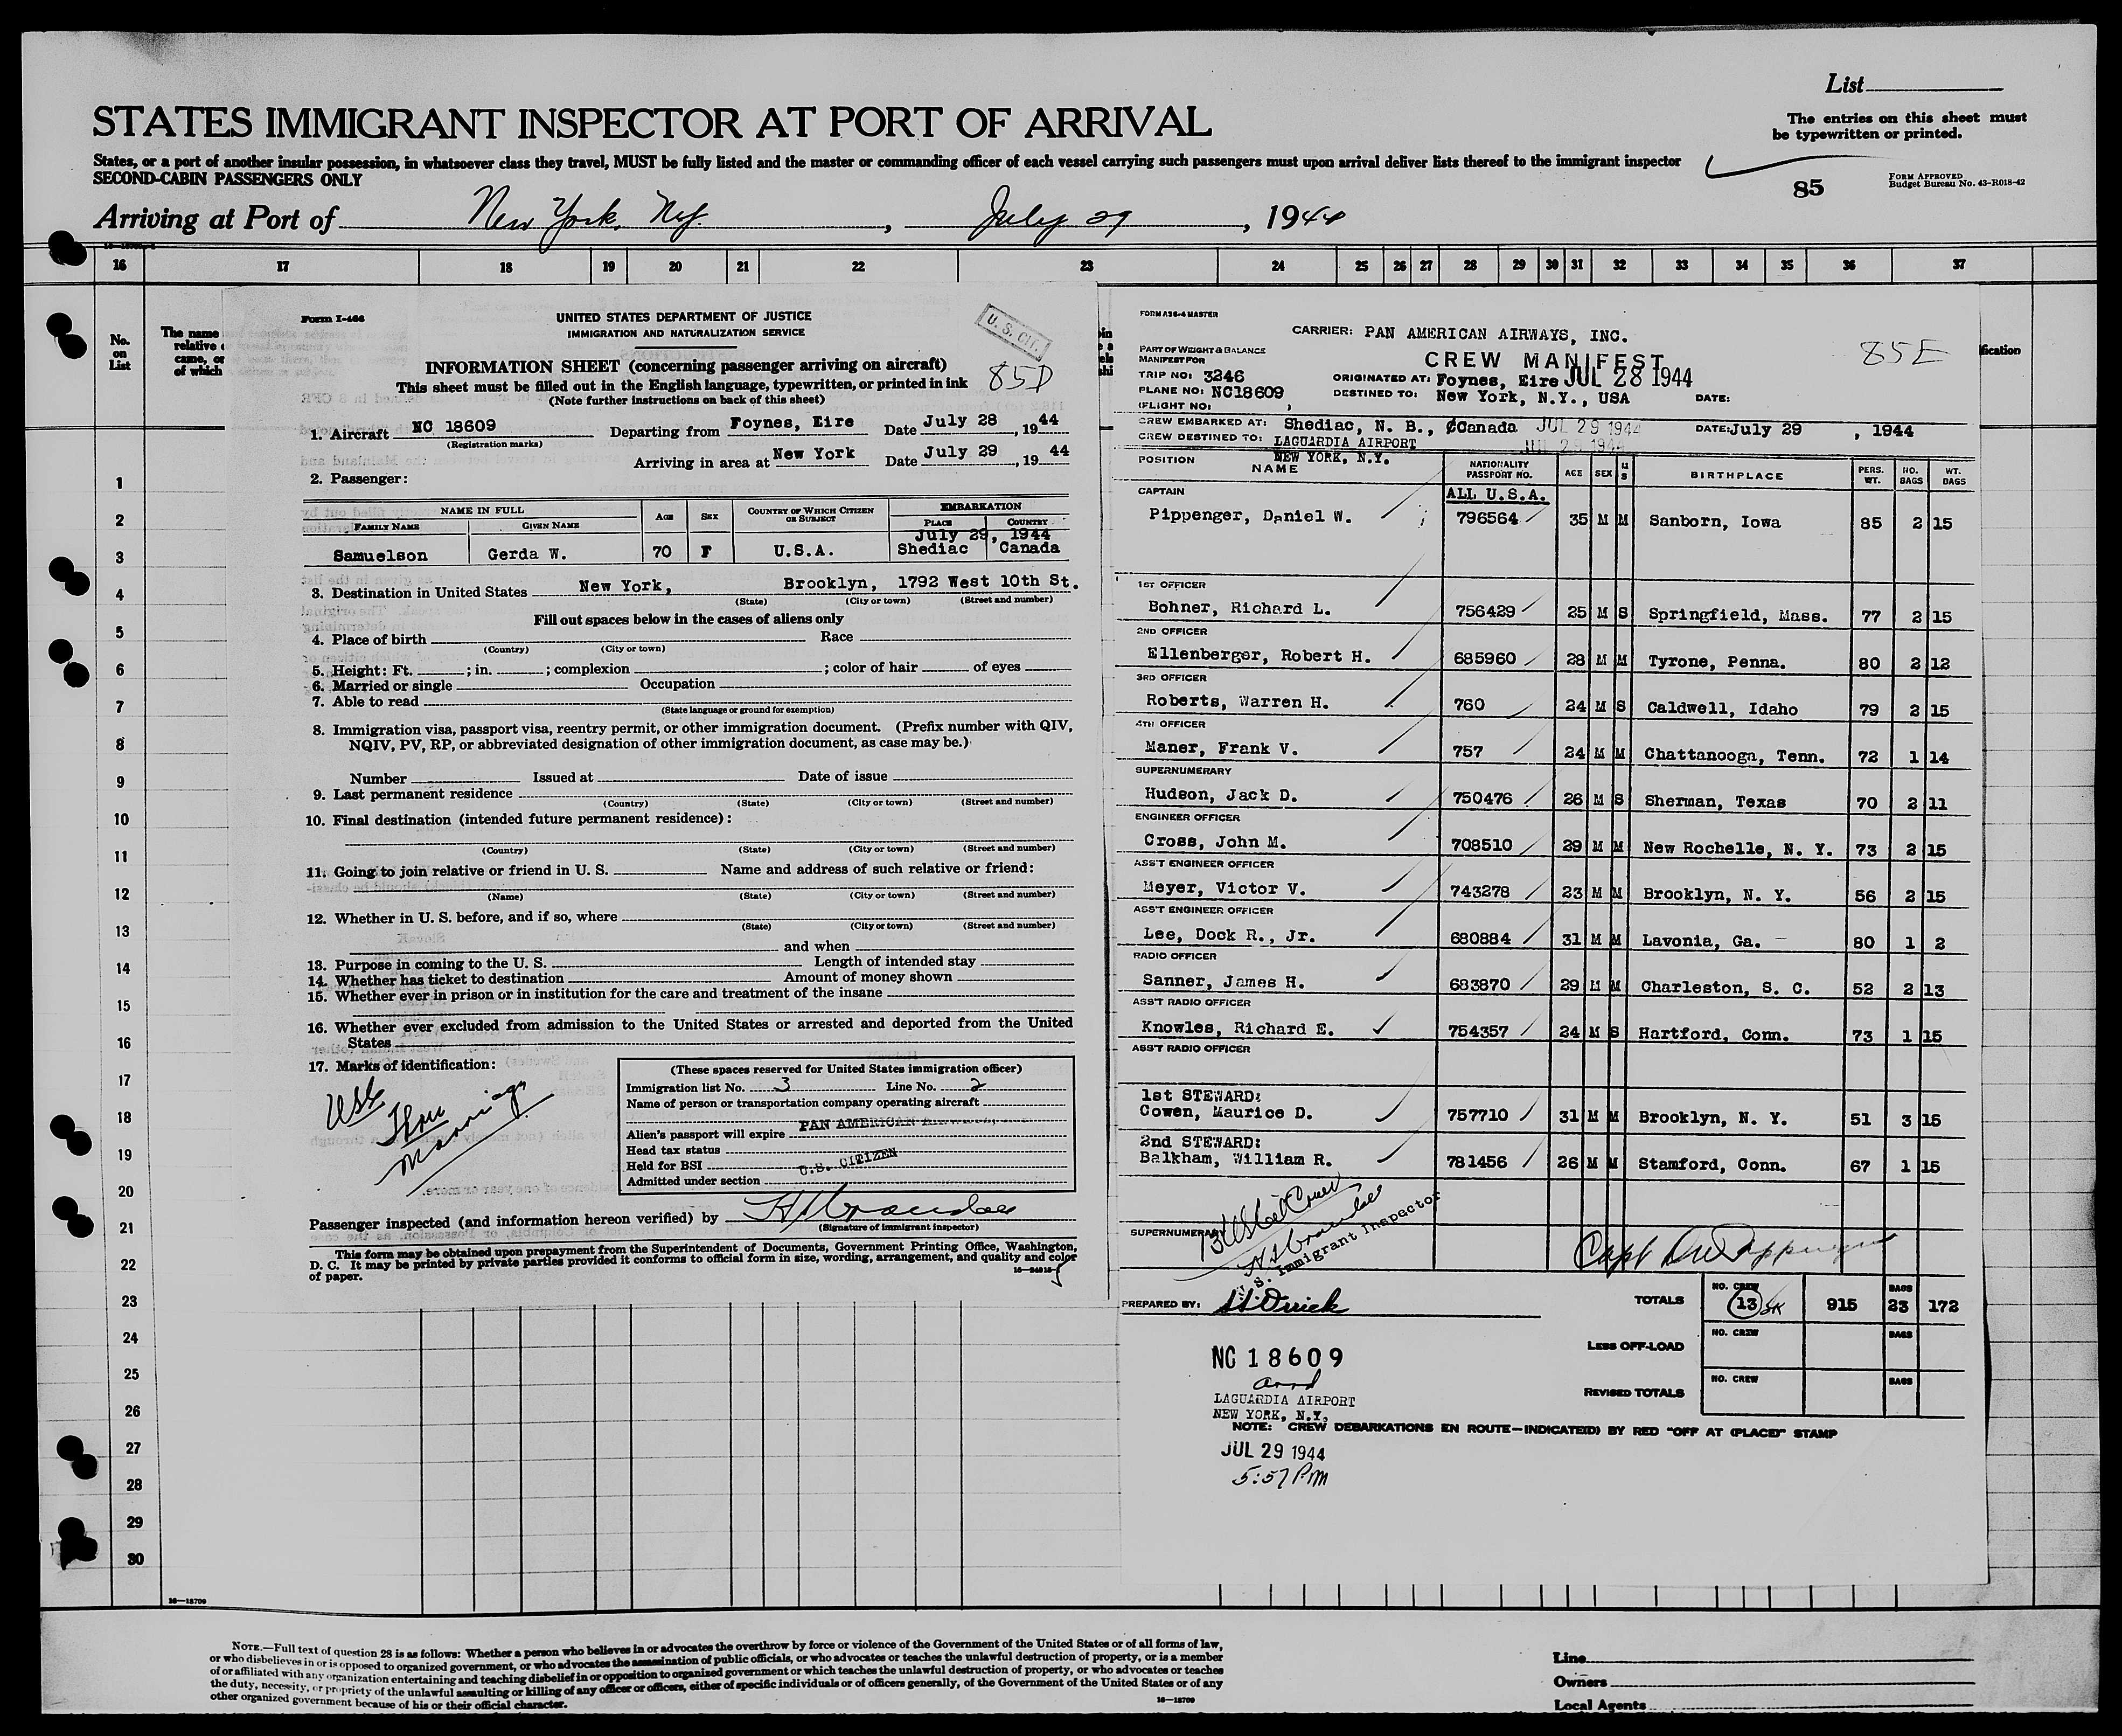 List
STATES IMMIGRANT INSPECTOR AT PORT OF ARRIVAL
The entries on this sheet must
be typewritten or printed.
States, or a port of another insular possession, in whatsoever class they travel, MUST be fully listed and the master or commanding officer of each vessel carrying such passengers must upon arrival deliver lists thereof to the immigrant inspector
SECOND-CABIN PASSENGERS ONLY
85
FORM APPROVED
Budget Bureau No. 43-R018-42
Arriving at Port of New York, N.Y., July 29, 1944
16 17 18 19 20 21 22 23 24 25 26 27 28 29 30 31 32 33 34 35 36 37
No.
on
List
The name
relative
came, or
of which
1
2
3
4
5
6
7
8
9
10
11
12
13
14
15
16
17
18
19
20
21
22
23
24
25
26
27
28
29
30
16—18709
Form I-466
UNITED STATES DEPARTMENT OF JUSTICE
IMMIGRATION AND NATURALIZATION SERVICE
U. S. CIT.
INFORMATION SHEET (concerning passenger arriving on aircraft)
85D
This sheet must be filled out in the English language, typewritten, or printed in ink
(Note further instructions on back of this sheet)
1. Aircraft NC 18609 Departing from Foynes, Eire Date July 28, 1944
(Registration marks)
Arriving in area at New York Date July 29, 1944
2. Passenger:
NAME IN FULL AGE SEX COUNTRY OF WHICH CITIZEN OR SUBJECT EMBARKATION
FAMILY NAME GIVEN NAME PLACE COUNTRY
July 29, 1944
Samuelson Gerda W. 70 F U.S.A. Shediac Canada
3. Destination in United States New York, Brooklyn, 1792 West 10th St.
(State) (City or town) (Street and number)
Fill out spaces below in the cases of aliens only
4. Place of birth Race
(Country) (City or town)
5. Height: Ft. ; in. ; complexion ; color of hair of eyes
6. Married or single Occupation
7. Able to read
(State language or ground for exemption)
8. Immigration visa, passport visa, reentry permit, or other immigration document. (Prefix number with QIV,
NQIV, PV, RP, or abbreviated designation of other immigration document, as case may be.)
Number Issued at Date of issue
9. Last permanent residence
(Country) (State) (City or town) (Street and number)
10. Final destination (intended future permanent residence):
(Country) (State) (City or town) (Street and number)
11. Going to join relative or friend in U. S. Name and address of such relative or friend:
(Name) (State) (City or town) (Street and number)
12. Whether in U. S. before, and if so, where
(State) (City or town) (Street and number)
and when
13. Purpose in coming to the U. S. Length of intended stay
14. Whether has ticket to destination Amount of money shown
15. Whether ever in prison or in institution for the care and treatment of the insane
16. Whether ever excluded from admission to the United States or arrested and deported from the United
States
17. Marks of identification:
USC
Thru
marriage
(These spaces reserved for United States immigration officer)
Immigration list No. 3 Line No. 2
Name of person or transportation company operating aircraft
PAN AMERICAN
Alien's passport will expire
Head tax status
Held for BSI U.S. CITIZEN
Admitted under section
Passenger inspected (and information hereon verified) by
(Signature of immigrant inspector)
This form may be obtained upon prepayment from the Superintendent of Documents, Government Printing Office, Washington,
D. C. It may be printed by private parties provided it conforms to official form in size, wording, arrangement, and quality and color
of paper.
FORM A36-4 MASTER
CARRIER: PAN AMERICAN AIRWAYS, INC.
PART OF WEIGHT & BALANCE
MANIFEST FOR
CREW MANIFEST
85E
fication
TRIP NO: 3246 ORIGINATED AT: Foynes, Eire JUL 28 1944
PLANE NO: NC18609 DESTINED TO: New York, N.Y., USA DATE:
(FLIGHT NO: )
CREW EMBARKED AT: Shediac, N. B., Canada JUL 29 1944 DATE: July 29, 1944
CREW DESTINED TO: LAGUARDIA AIRPORT JUL 29 1944
NEW YORK, N.Y.
POSITION NAME NATIONALITY PASSPORT NO. AGE SEX M S BIRTHPLACE PERS. WT. NO. BAGS WT. BAGS
CAPTAIN ALL U.S.A.
Pippenger, Daniel W. 796564 35 M M Sanborn, Iowa 85 2 15
1ST OFFICER
Bohner, Richard L. 756429 25 M S Springfield, Mass. 77 2 15
2ND OFFICER
Ellenberger, Robert H. 685960 28 M M Tyrone, Penna. 80 2 12
3RD OFFICER
Roberts, Warren H. 760 24 M S Caldwell, Idaho 79 2 15
4TH OFFICER
Maner, Frank V. 757 24 M M Chattanooga, Tenn. 72 1 14
SUPERNUMERARY
Hudson, Jack D. 750476 26 M S Sherman, Texas 70 2 11
ENGINEER OFFICER
Cross, John M. 708510 29 M M New Rochelle, N. Y. 73 2 15
ASS'T ENGINEER OFFICER
Meyer, Victor V. 743278 23 M M Brooklyn, N. Y. 56 2 15
ASS'T ENGINEER OFFICER
Lee, Dock R., Jr. 680884 31 M M Lavonia, Ga. 80 1 2
RADIO OFFICER
Sanner, James H. 683870 29 M M Charleston, S. C. 52 2 13
ASS'T RADIO OFFICER
Knowles, Richard E. 754357 24 M S Hartford, Conn. 73 1 15
ASS'T RADIO OFFICER
1st STEWARD:
Cowen, Maurice D. 757710 31 M M Brooklyn, N. Y. 51 3 15
2nd STEWARD:
Balkham, William R. 781456 26 M M Stamford, Conn. 67 1 15
SUPERNUMERARY
U.S. Immigrant Inspector
Capt D W Pippenger
PREPARED BY:
TOTALS NO. CREW 13 915 BAGS 23 172
LESS OFF-LOAD NO. CREW BAGS
REVISED TOTALS NO. CREW BAGS
NC 18609
arrd
LAGUARDIA AIRPORT
NEW YORK, N.Y.
NOTE: CREW DEBARKATIONS EN ROUTE—INDICATE(D) BY RED "OFF AT (PLACE)" STAMP
JUL 29 1944
5:57 PM
NOTE.—Full text of question 28 is as follows: Whether a person who believes in or advocates the overthrow by force or violence of the Government of the United States or of all forms of law,
or who disbelieves in or is opposed to organized government, or who advocates the assassination of public officials, or who advocates or teaches the unlawful destruction of property, or is a member
of or affiliated with any organization entertaining and teaching disbelief in or opposition to organized government or which teaches the unlawful destruction of property, or who advocates or teaches
the duty, necessity, or propriety of the unlawful assaulting or killing of any officer or officers, either of specific individuals or of officers generally, of the Government of the United States or of any
other organized government because of his or their official character.
16—18709
Line
Owners
Local Agents